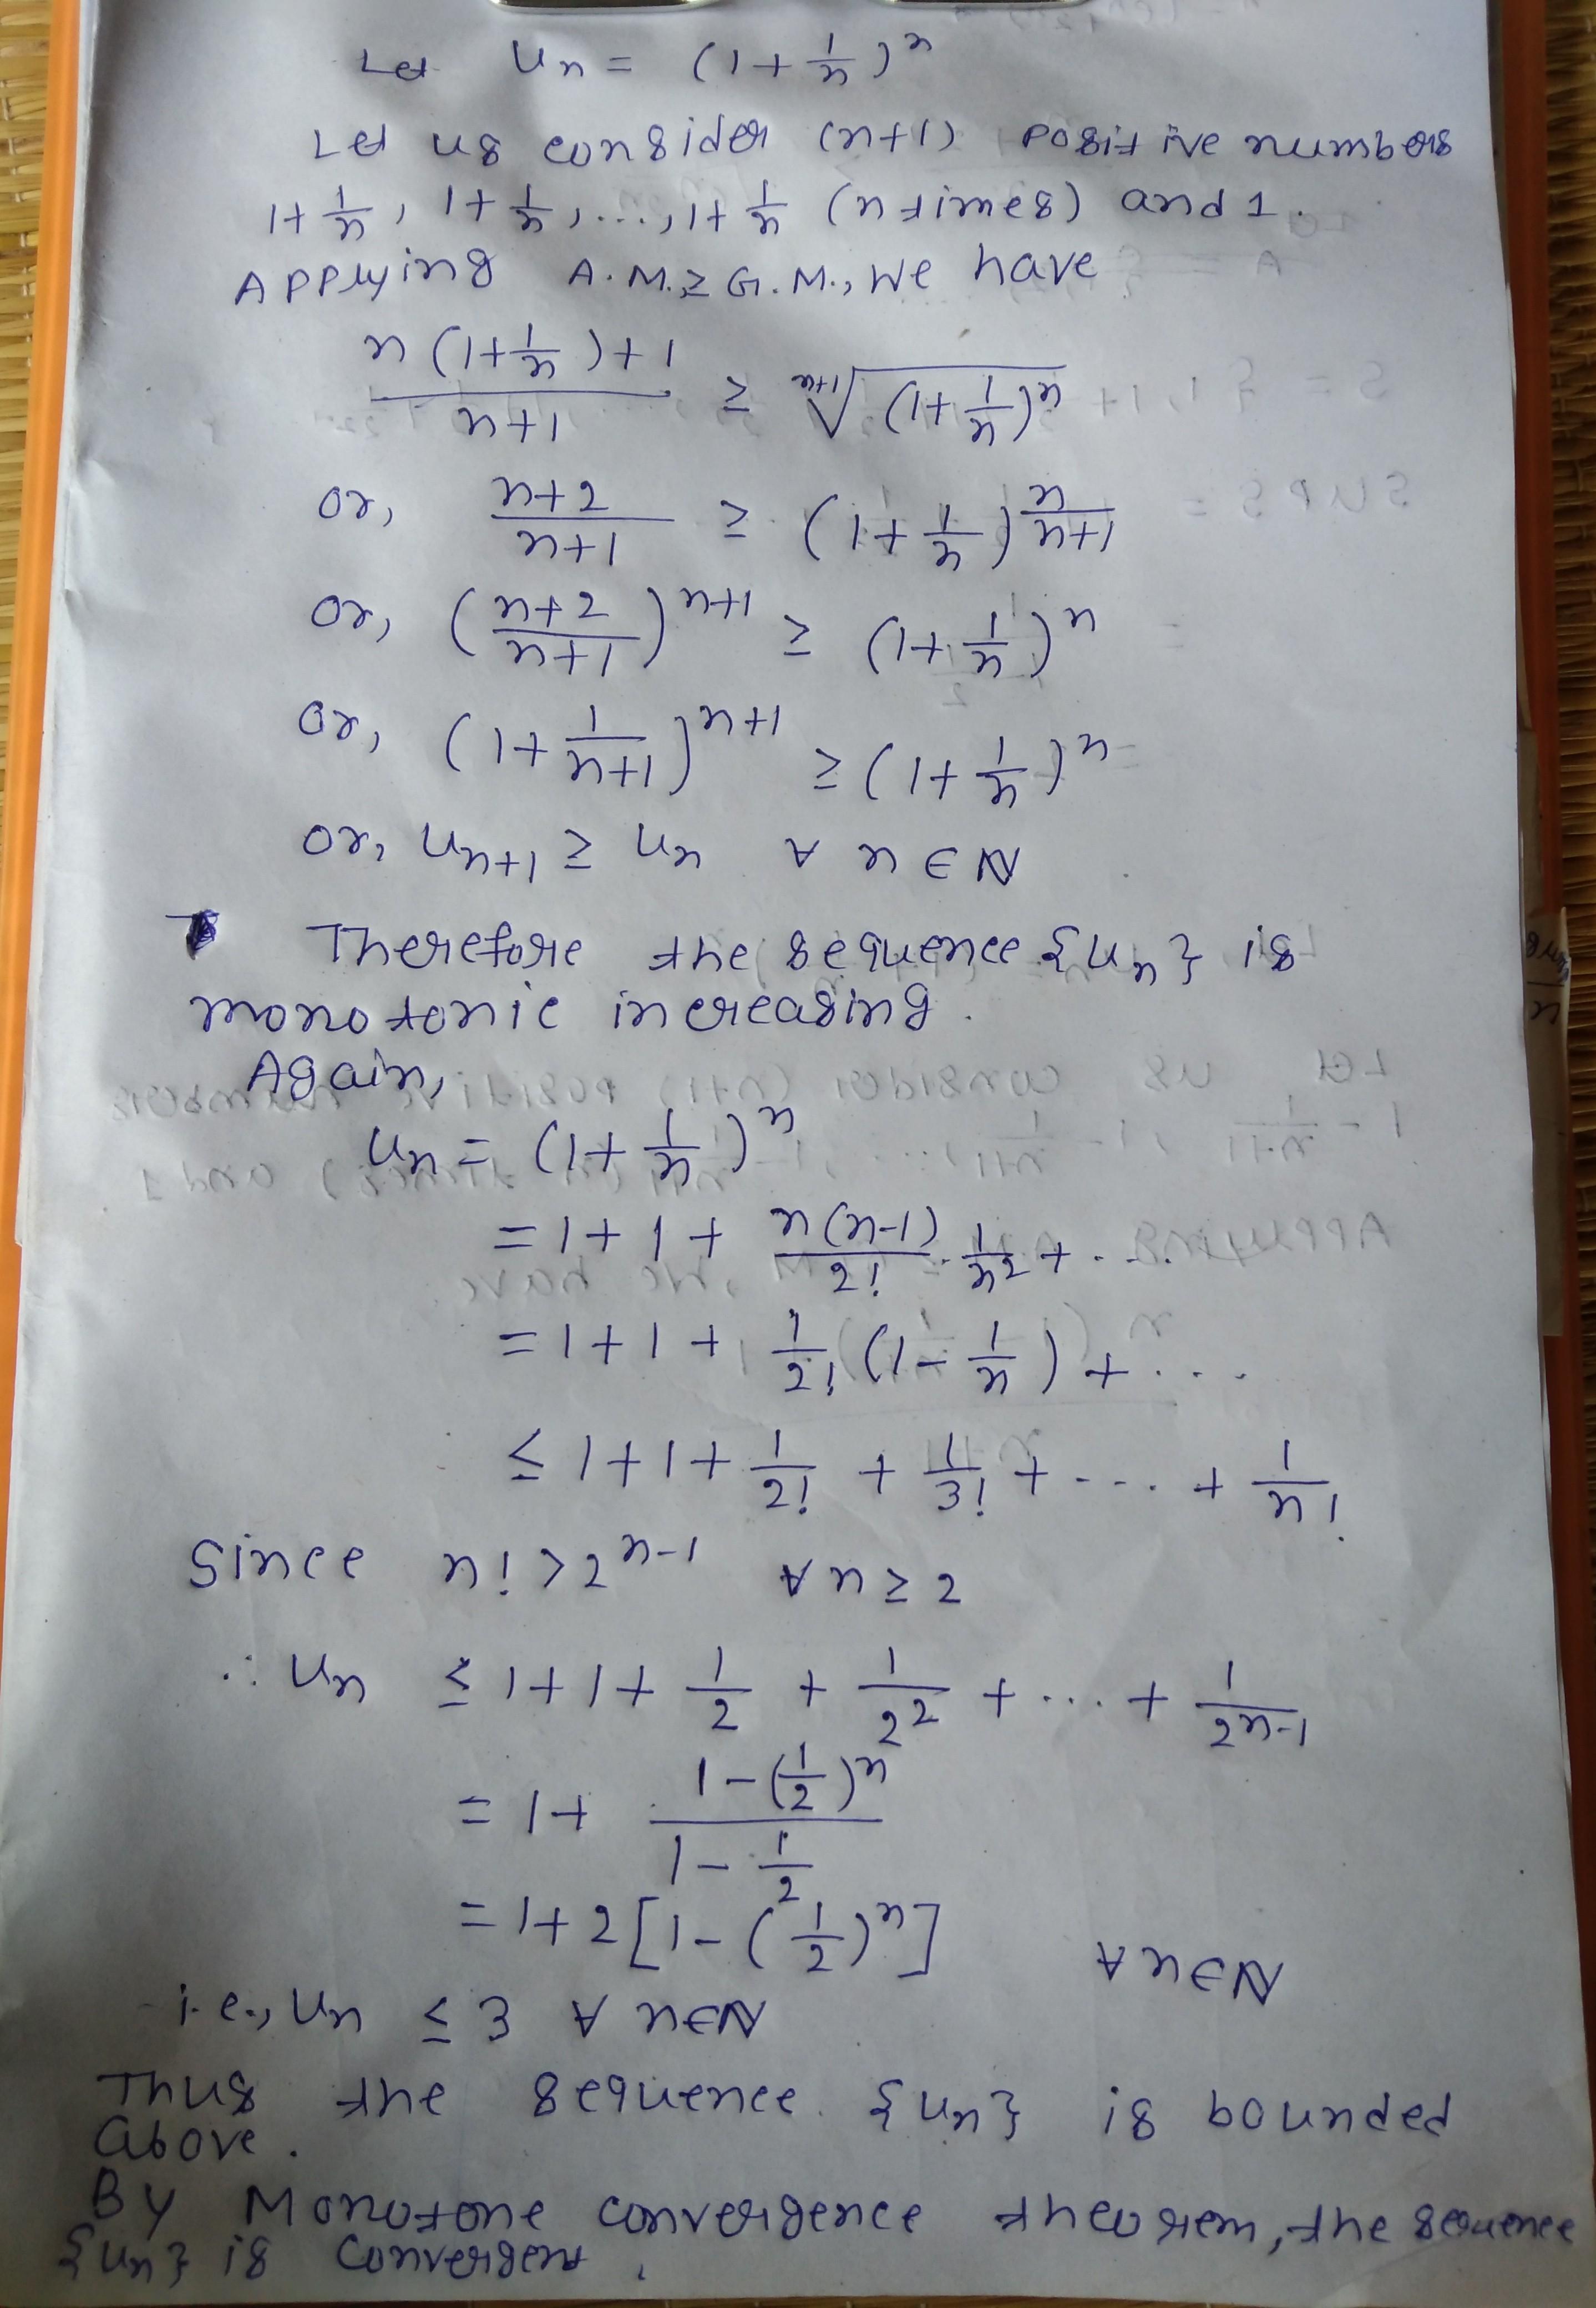 Let Un = (1 + 1/n)^n
Let us consider (n+1) positive numbers
1 + 1/n, 1 + 1/n, ..., 1 + 1/n (n times) and 1.
Applying A.M. ≥ G.M., we have
(n(1 + 1/n) + 1)/(n+1) ≥ ⁿ⁺¹√((1 + 1/n)^n)
or, (n+2)/(n+1) ≥ (1 + 1/n)^(n/(n+1))
or, ((n+2)/(n+1))^(n+1) ≥ (1 + 1/n)^n
or, (1 + 1/(n+1))^(n+1) ≥ (1 + 1/n)^n
or, Un+1 ≥ Un ∀ n ∈ N
Therefore the sequence {Un} is
monotonic increasing.
Again,
Un = (1 + 1/n)^n
= 1 + 1 + n(n-1)/2! · 1/n² + ...
= 1 + 1 + 1/2! (1 - 1/n) + ...
≤ 1 + 1 + 1/2! + 1/3! + ... + 1/n!
Since n! > 2^(n-1) ∀ n ≥ 2
∴ Un ≤ 1 + 1 + 1/2 + 1/2² + ... + 1/2^(n-1)
= 1 + (1 - (1/2)^n)/(1 - 1/2)
= 1 + 2[1 - (1/2)^n] ∀ n ∈ N
i.e., Un ≤ 3 ∀ n ∈ N
Thus the sequence {Un} is bounded
above.
By Monotone convergence theorem, the sequence
{Un} is convergent.